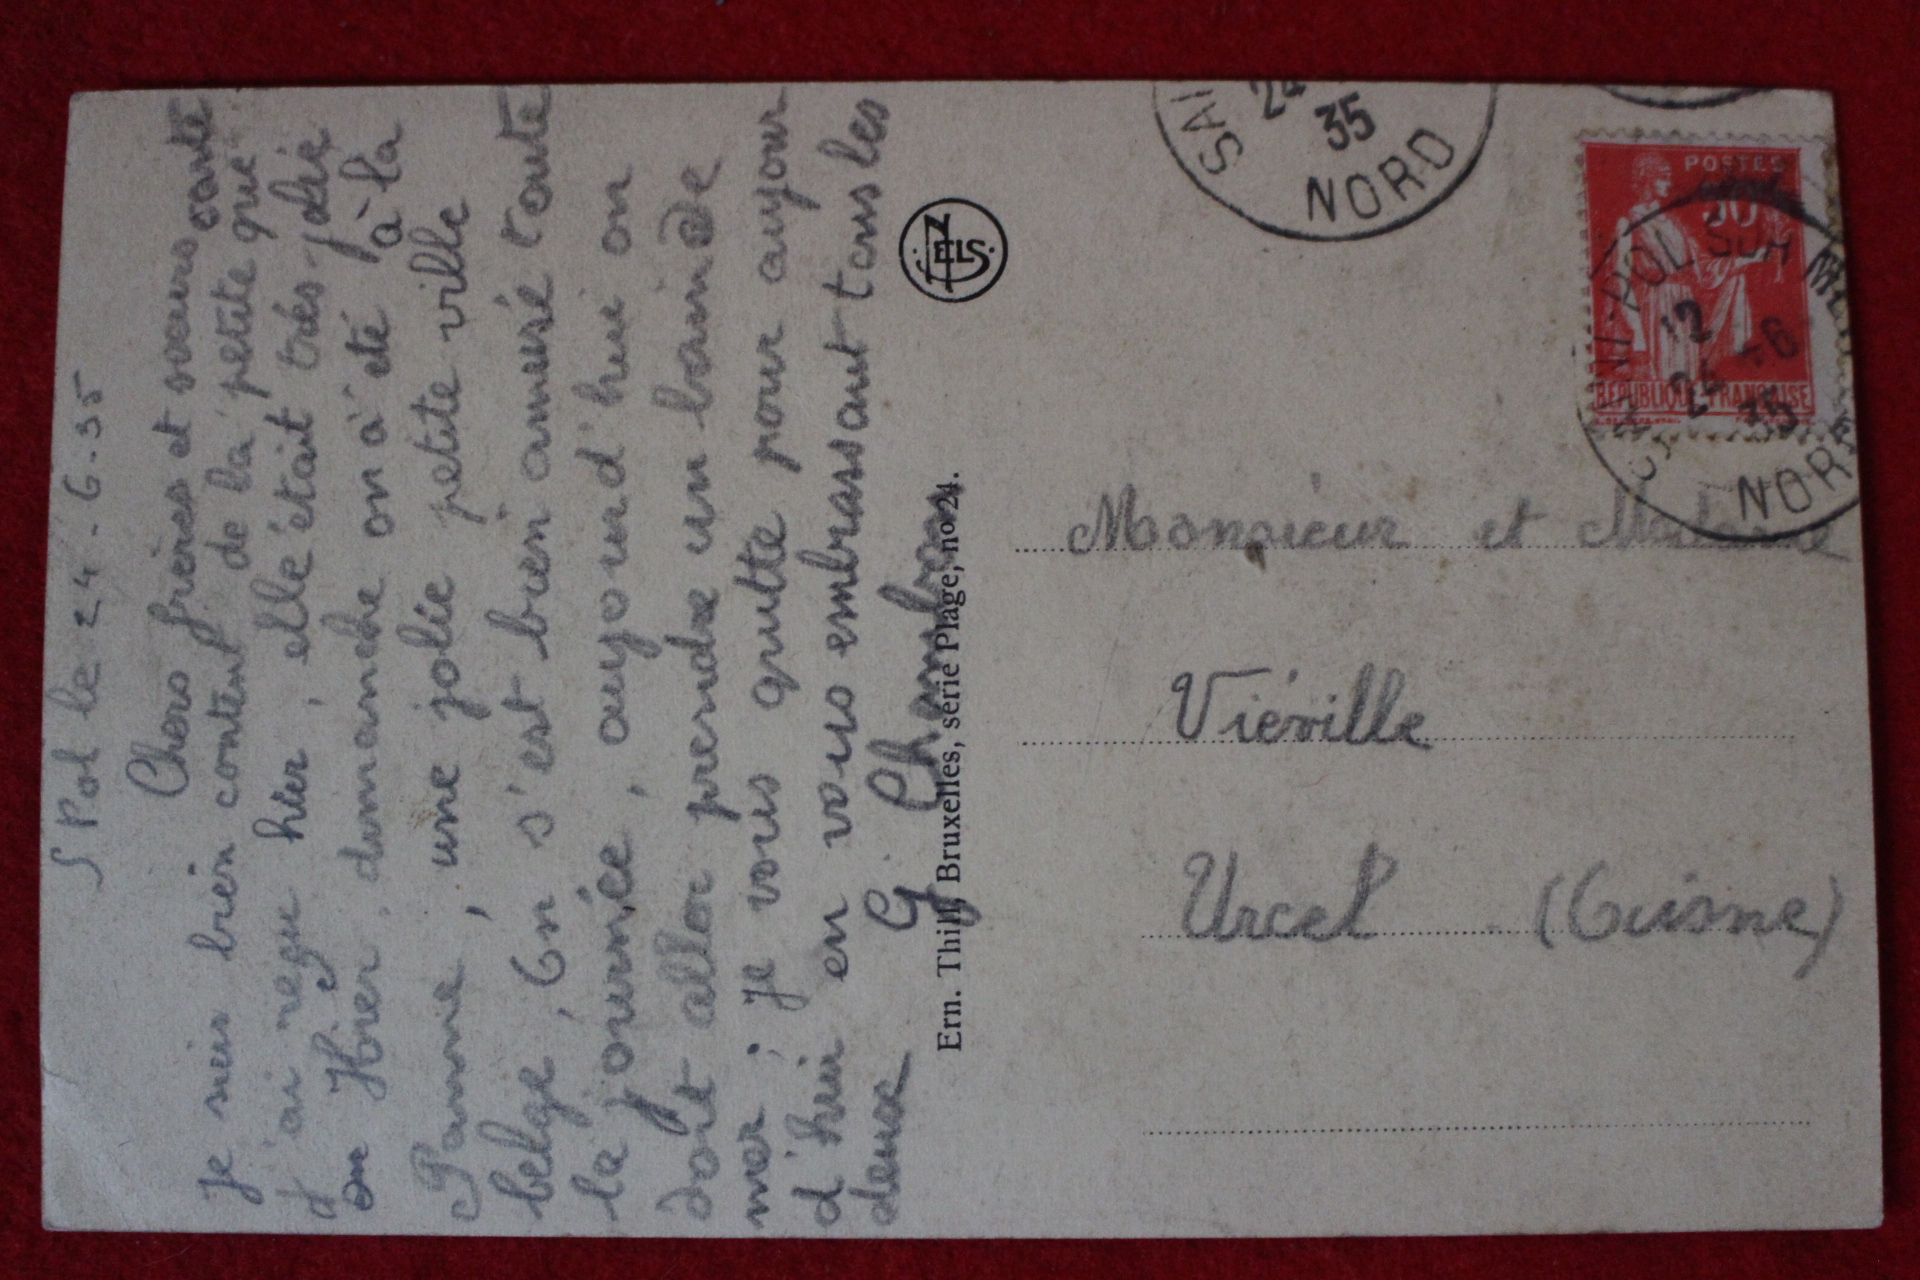 S Pol le 24-6-35
Chers frères et sœurs
Je suis bien content de la petite carte
d'ai reçu hier, elle était très jolie que
on Hier, dimanche on à été à la
Panne, une jolie petite ville
belge, On s'est bien amusé toute
la journée, aujourd'hui on
doit aller prendre un bain de
mer; je vous quitte pour aujour
d'hui en vous embrassant tous les
deux G.
Ern. Thill, Bruxelles, série Plage, no 24.
NELS
SAI
24
35
NORD
POSTES
50
REPUBLIQUE FRANÇAISE
POL SUR MER
12
24 -6
35
NORD
Monsieur et Madame
Viéville
Urcel (Guisne)